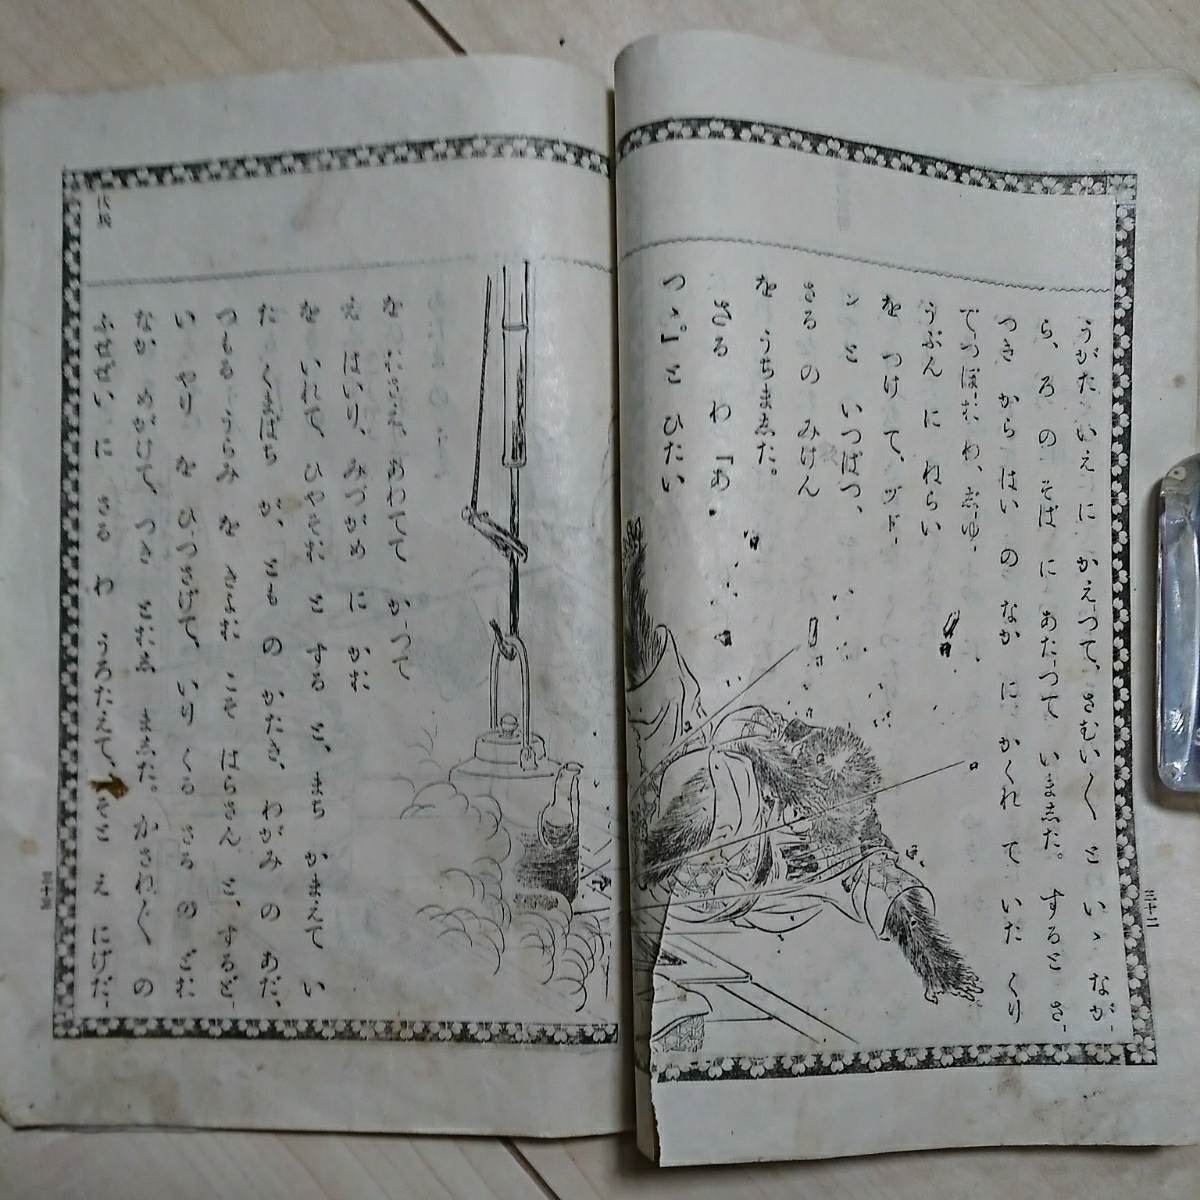 うがた いえ に かえつて、さむい〱 と いゝ なが-
ら、ろ の そば に あたつて いました。 すると さ-
つき から はい の なか に かくれ て いた くり
てつぽーだま わ、しゆ-
うぶん に ねらい
を つけ て、ヅドー
ン と いつぱつ、
さる の みけん
を うちました。
さる わ 「あ
つゝ。」と ひたい
三十二
を おさえ、あわてて かつて
え はいり、みづがめ に かお
を いれて、ひやそお と する と、まち かまえて い
た くまばち が、とも の かたき、わがみ の あだ、
つもる うらみ を きょお こそ はらさん と、するど-
い やり を ひつさげて、いり くる さる の どお
なか めがけて、つき とおし ました。 かさね〲 の
ふせぜい に さる わ うろたえて、そと え にげだ-
三十三